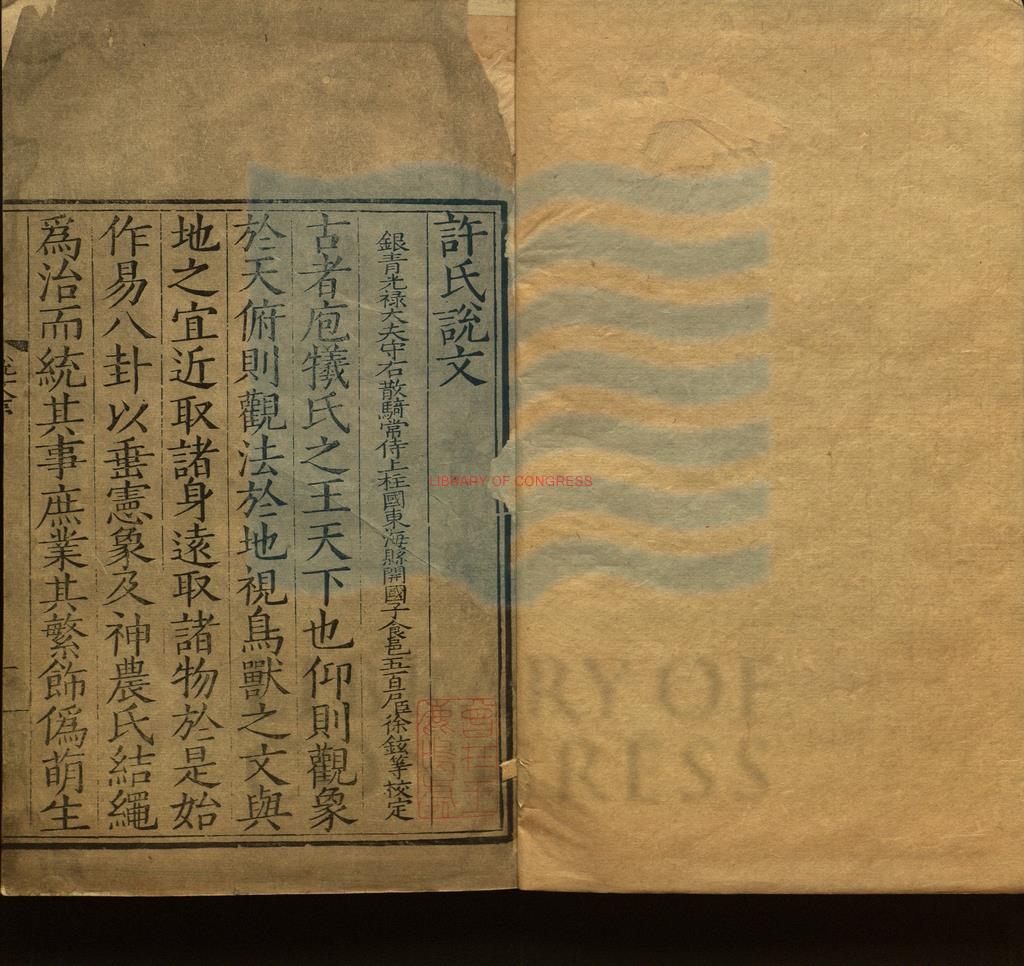 許氏說文
銀青光祿大夫守右散騎常侍上柱國東海縣開國子食邑五百戶臣徐鉉等校定
古者庖犧氏之王天下也仰則觀象
於天俯則觀法於地視鳥獸之文與
地之宜近取諸身遠取諸物於是始
作易八卦以垂憲象及神農氏結繩
爲治而統其事庶業其繁飾僞萌生
LIBRARY OF CONGRESS